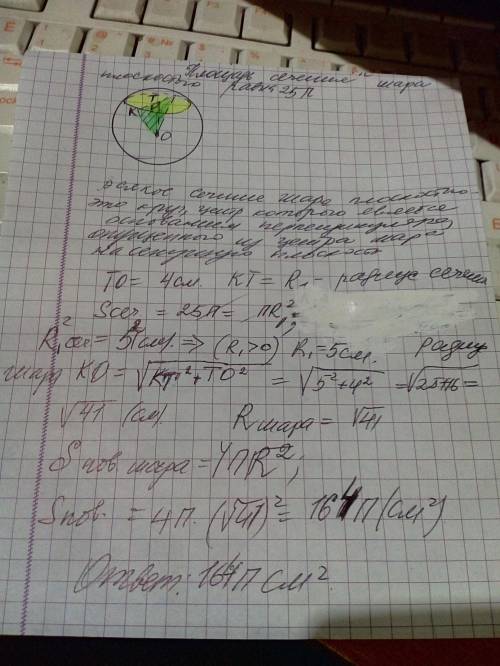 Площадь сечения шара
плоскостью равна 25П
T
K
O
всякое сечение шара плоскостью
это круг, центр которого является
основанием перпендикуляра,
опущенного из центра шара
на секущую плоскость
TO = 4см. KT = R₁ - радиус сечения
Sсеч. = 25П = ПR₁²;
R₁²сеч = 5²(см). => (R₁>0) R₁ = 5см. Радиус
шара KO = √KT²+TO² = √5²+4² = √25+16 =
√41 (см). Rшара = √41
Sпов. шара = 4ПR²;
Sпов. = 4П · (√41)² = 164П(см²)
Ответ: 164П см².